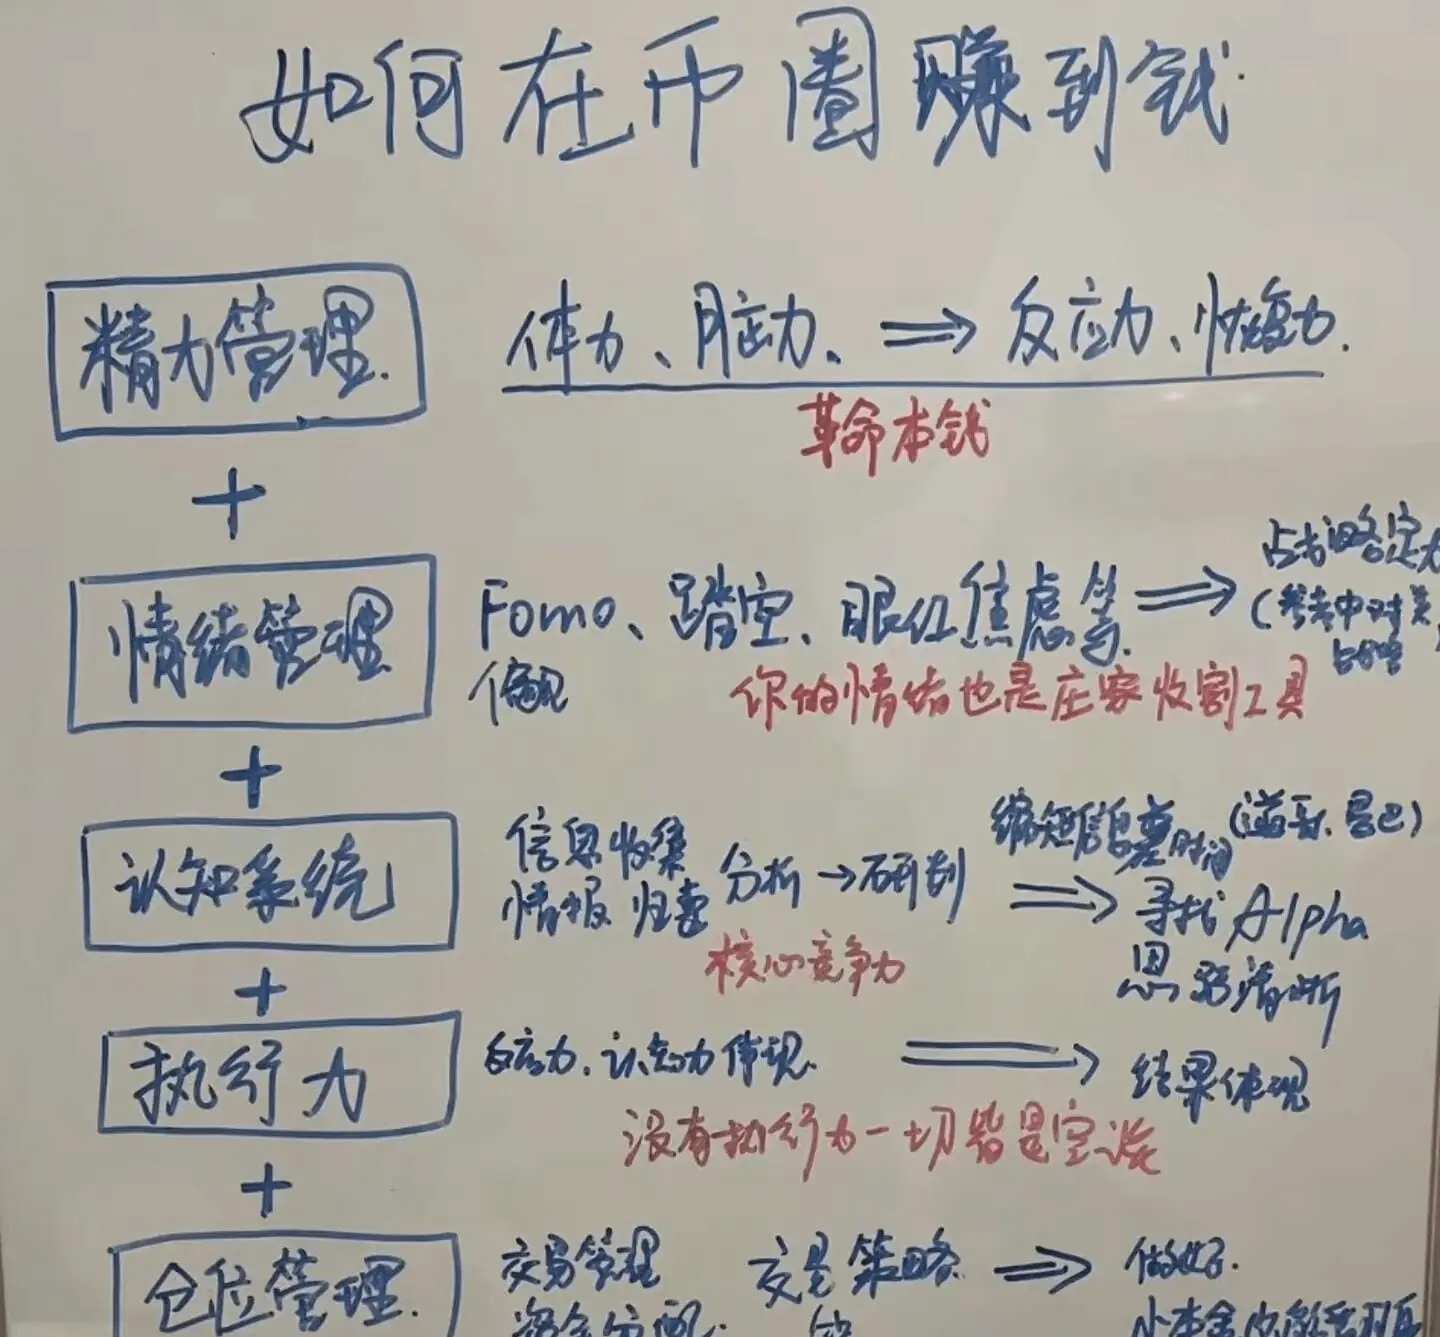 如何在币圈赚到钱.
精力管理.
体力、脑力、⇒反应力、恢复力.
革命本钱
+
情绪管理
Fomo、踏空、眼红焦虑等.⇒战略定力
偏见
(参考中对美战略)
你的情绪也是庄家收割工具
+
认知系统
信息收集
情报 归囊
分析→研判⇒
缩短信息差时间
寻找Alpha
思路清晰
核心竞争力
+
执行力
反应力、认知力体现.⇒结果体现
没有执行力一切皆是空谈
+
仓位管理.
交易管理
资金分配.
交易策略⇒做好.